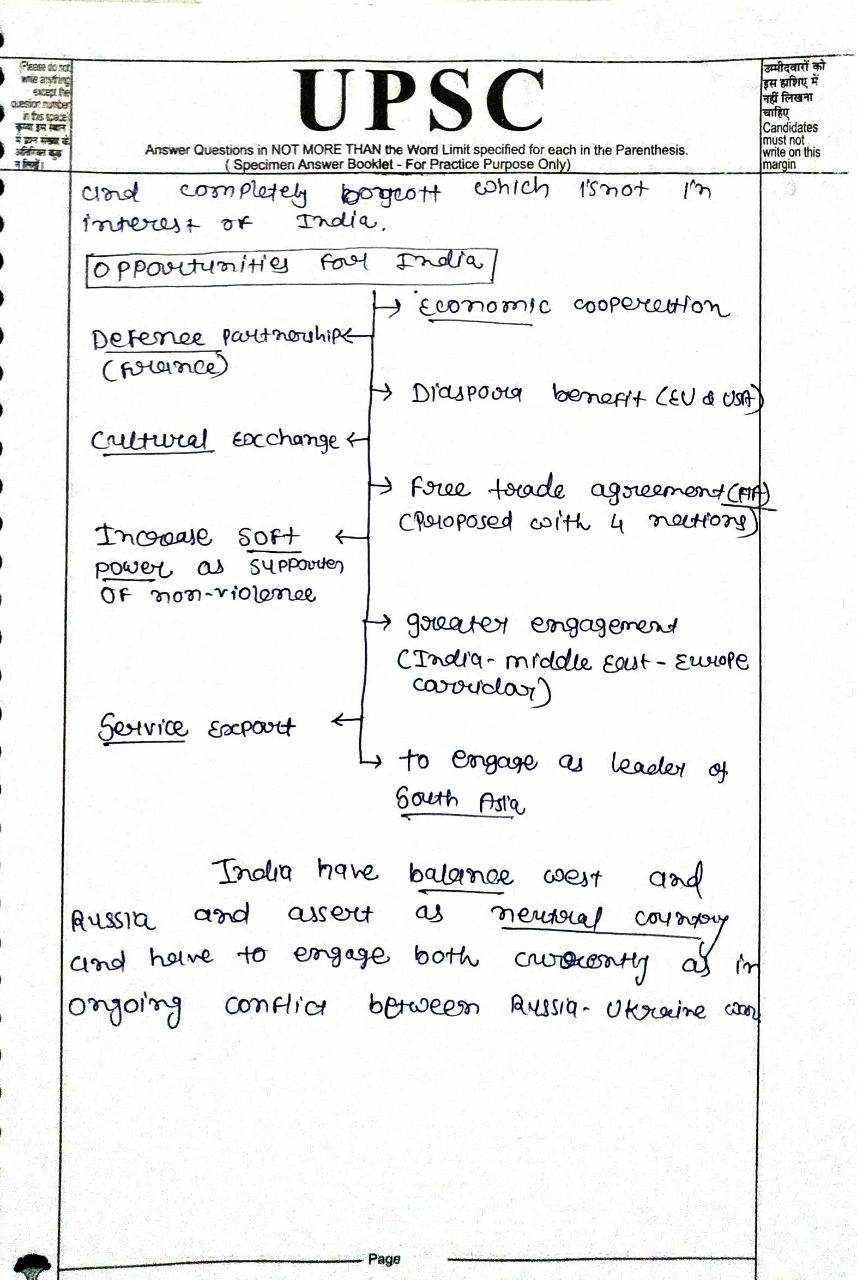 Please do not
write anything
except the
question number
in this space
कृपया इस स्थान
में प्रश्न संख्या के
अतिरिक्त कुछ
न लिखें।
UPSC
Answer Questions in NOT MORE THAN the Word Limit specified for each in the Parenthesis.
( Specimen Answer Booklet - For Practice Purpose Only)
उम्मीदवारों को
इस हाशिए में
नहीं लिखना
चाहिए
Candidates
must not
write on this
margin
and completely boycott which isnot in
interest of India.
Opportunities for India
→ Economic cooperation
Defence partnership ←
(France)
→ Diaspora benefit (EU & USA)
Cultural Exchange ←
→ Free trade agreement (FTA)
(Proposed with 4 nations)
Increase soft ←
power as supporter
of non-violence
→ greater engagement
(India - middle East - Europe
corridor)
Service Export ←
→ to engage as leader of
South Asia
India have balance west and
Russia and assert as neutral country
and have to engage both as in
ongoing conflict between Russia - Ukraine war
Page